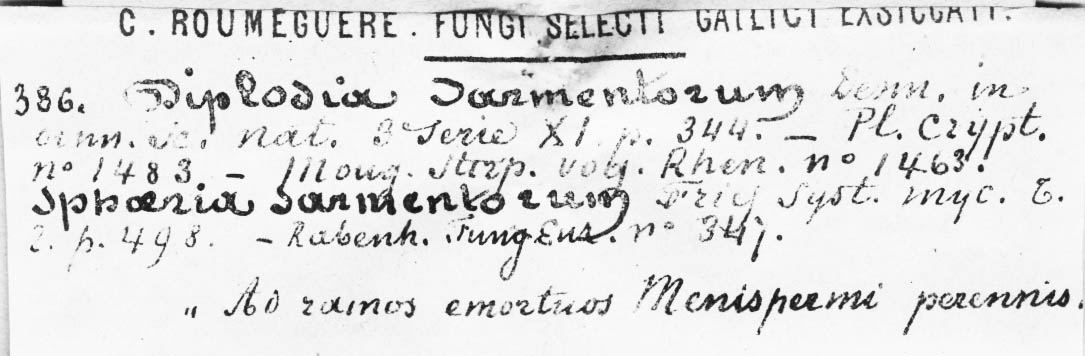 C. ROUMEGUERE. FUNGI SELECTI GALLICI EXSICCATI.
386. Diplodia Sarmentorum Desm. in
ann. Sc. nat. 3 Serie XI. p. 344. — Pl. Crypt.
nº 1483 — Moug. Stirp. Vog. Rhen. nº 1463.
Sphæria Sarmentorum Fries Syst. myc. t.
2. p. 498. — Rabenh. Fung Eur. nº 347.
" Ad ramos emortuos Menispermi perennis.